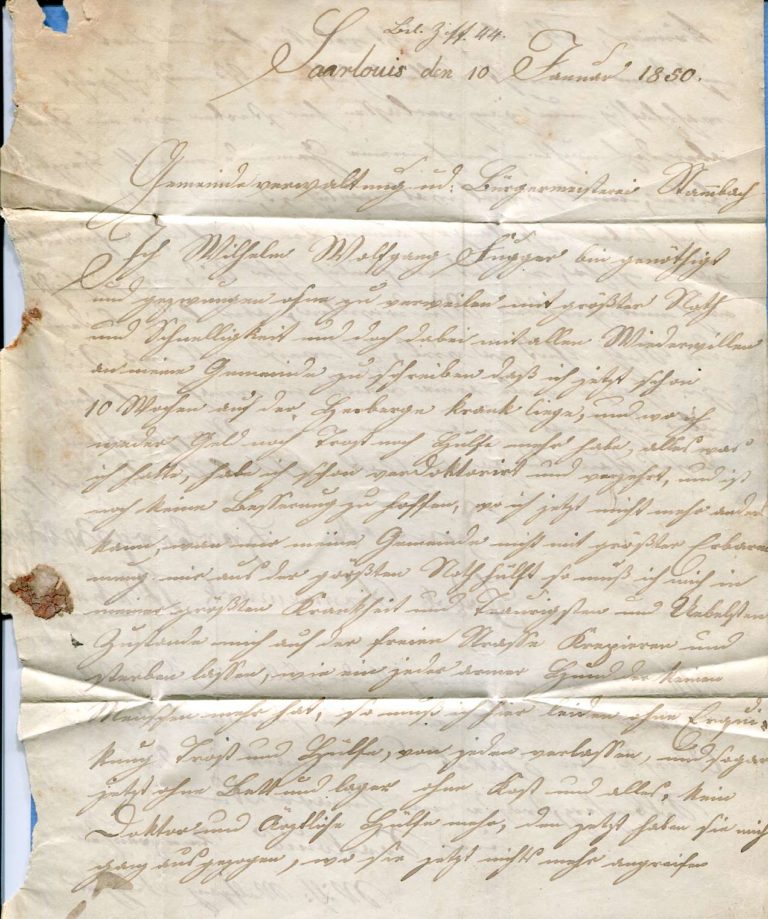 Bei. Ziff. 44.
Saarlouis den 10 Januar 1850.
Gemeindeverwaltung ud: Bürgermeisterei Stambach
Ich Wilhelm Wolfgang Fugger bin genöthigt
und gezwungen ohne zu verweilen mit größter Noth
und Schnelligkeit und doch dabei mit allen Wiederwillen
an meine Gemeinde zu schreiben daß ich jetzt schon
10 Wochen auf der Herberge krank liege, und wo ich
weder Geld noch Trost noch Hülfe mehr habe, alles was
ich hatte, habe ich schon verdoktorirt und verzehrt, und ist
noch keine Besserung zu hoffen, wo ich jetzt nicht mehr anders
kann, wan mir meine Gemeinde nicht mit größter Erbarm
mung mir aus der größten Noth hülft so muß ich mich in
meiner größten Krankheit und Traurigsten und Uebelsten
Zustande mich auf der freien Strasse Krepieren und
sterben lassen, wie ein jeder armer Hund der keinen
Menschen mehr hat, so muß ich hier leiden ohne Erqui-
kung Trost und Hülfe, von jeden verlassen, und sogar
jetzt ohne Bett und lager ohne Kost und alles, kein
Doktor und Ärztliche Hülfe mehr, den jetzt haben sie mich
ganz ausgezogen, wo sie jetzt nichts mehr angreifen